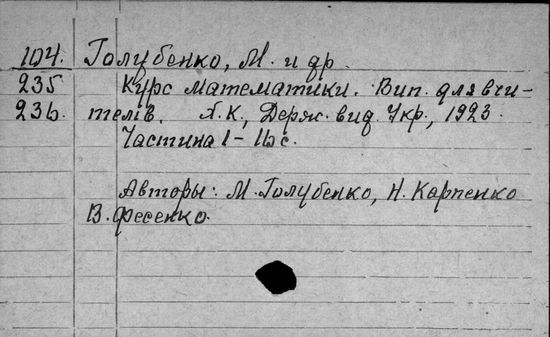 104. Голубенко, М. и др.
235 Курс математики. Вип. для вчи-
236. телів. Х.К., Держ. вид. Укр., 1923.
Частина I – с.
Авторы: М. Голубенко, Н. Карпенко
В. Фесенко.